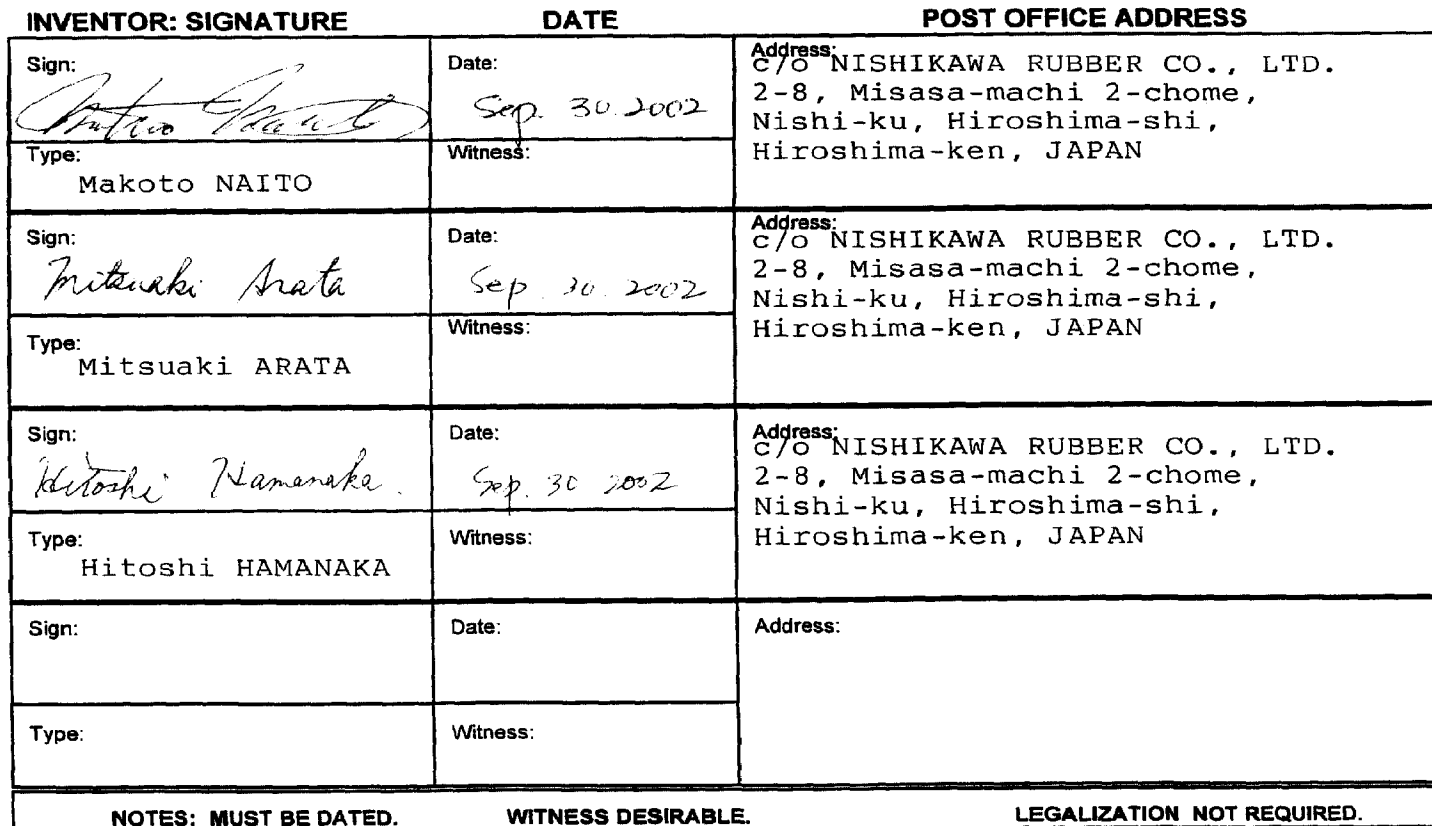 INVENTOR: SIGNATURE DATE POST OFFICE ADDRESS
Sign: Date: Sep. 30. 2002 Address:
c/o NISHIKAWA RUBBER CO., LTD.
2-8, Misasa-machi 2-chome,
Nishi-ku, Hiroshima-shi,
Hiroshima-ken, JAPAN
Type: Makoto NAITO Witness:
Sign: Mitsuaki Arata Date: Sep. 30. 2002 Address:
c/o NISHIKAWA RUBBER CO., LTD.
2-8, Misasa-machi 2-chome,
Nishi-ku, Hiroshima-shi,
Hiroshima-ken, JAPAN
Type: Mitsuaki ARATA Witness:
Sign: Hitoshi Hamanaka. Date: Sep. 30 2002 Address:
c/o NISHIKAWA RUBBER CO., LTD.
2-8, Misasa-machi 2-chome,
Nishi-ku, Hiroshima-shi,
Hiroshima-ken, JAPAN
Type: Hitoshi HAMANAKA Witness:
Sign: Date: Address:
Type: Witness:
NOTES: MUST BE DATED. WITNESS DESIRABLE. LEGALIZATION NOT REQUIRED.